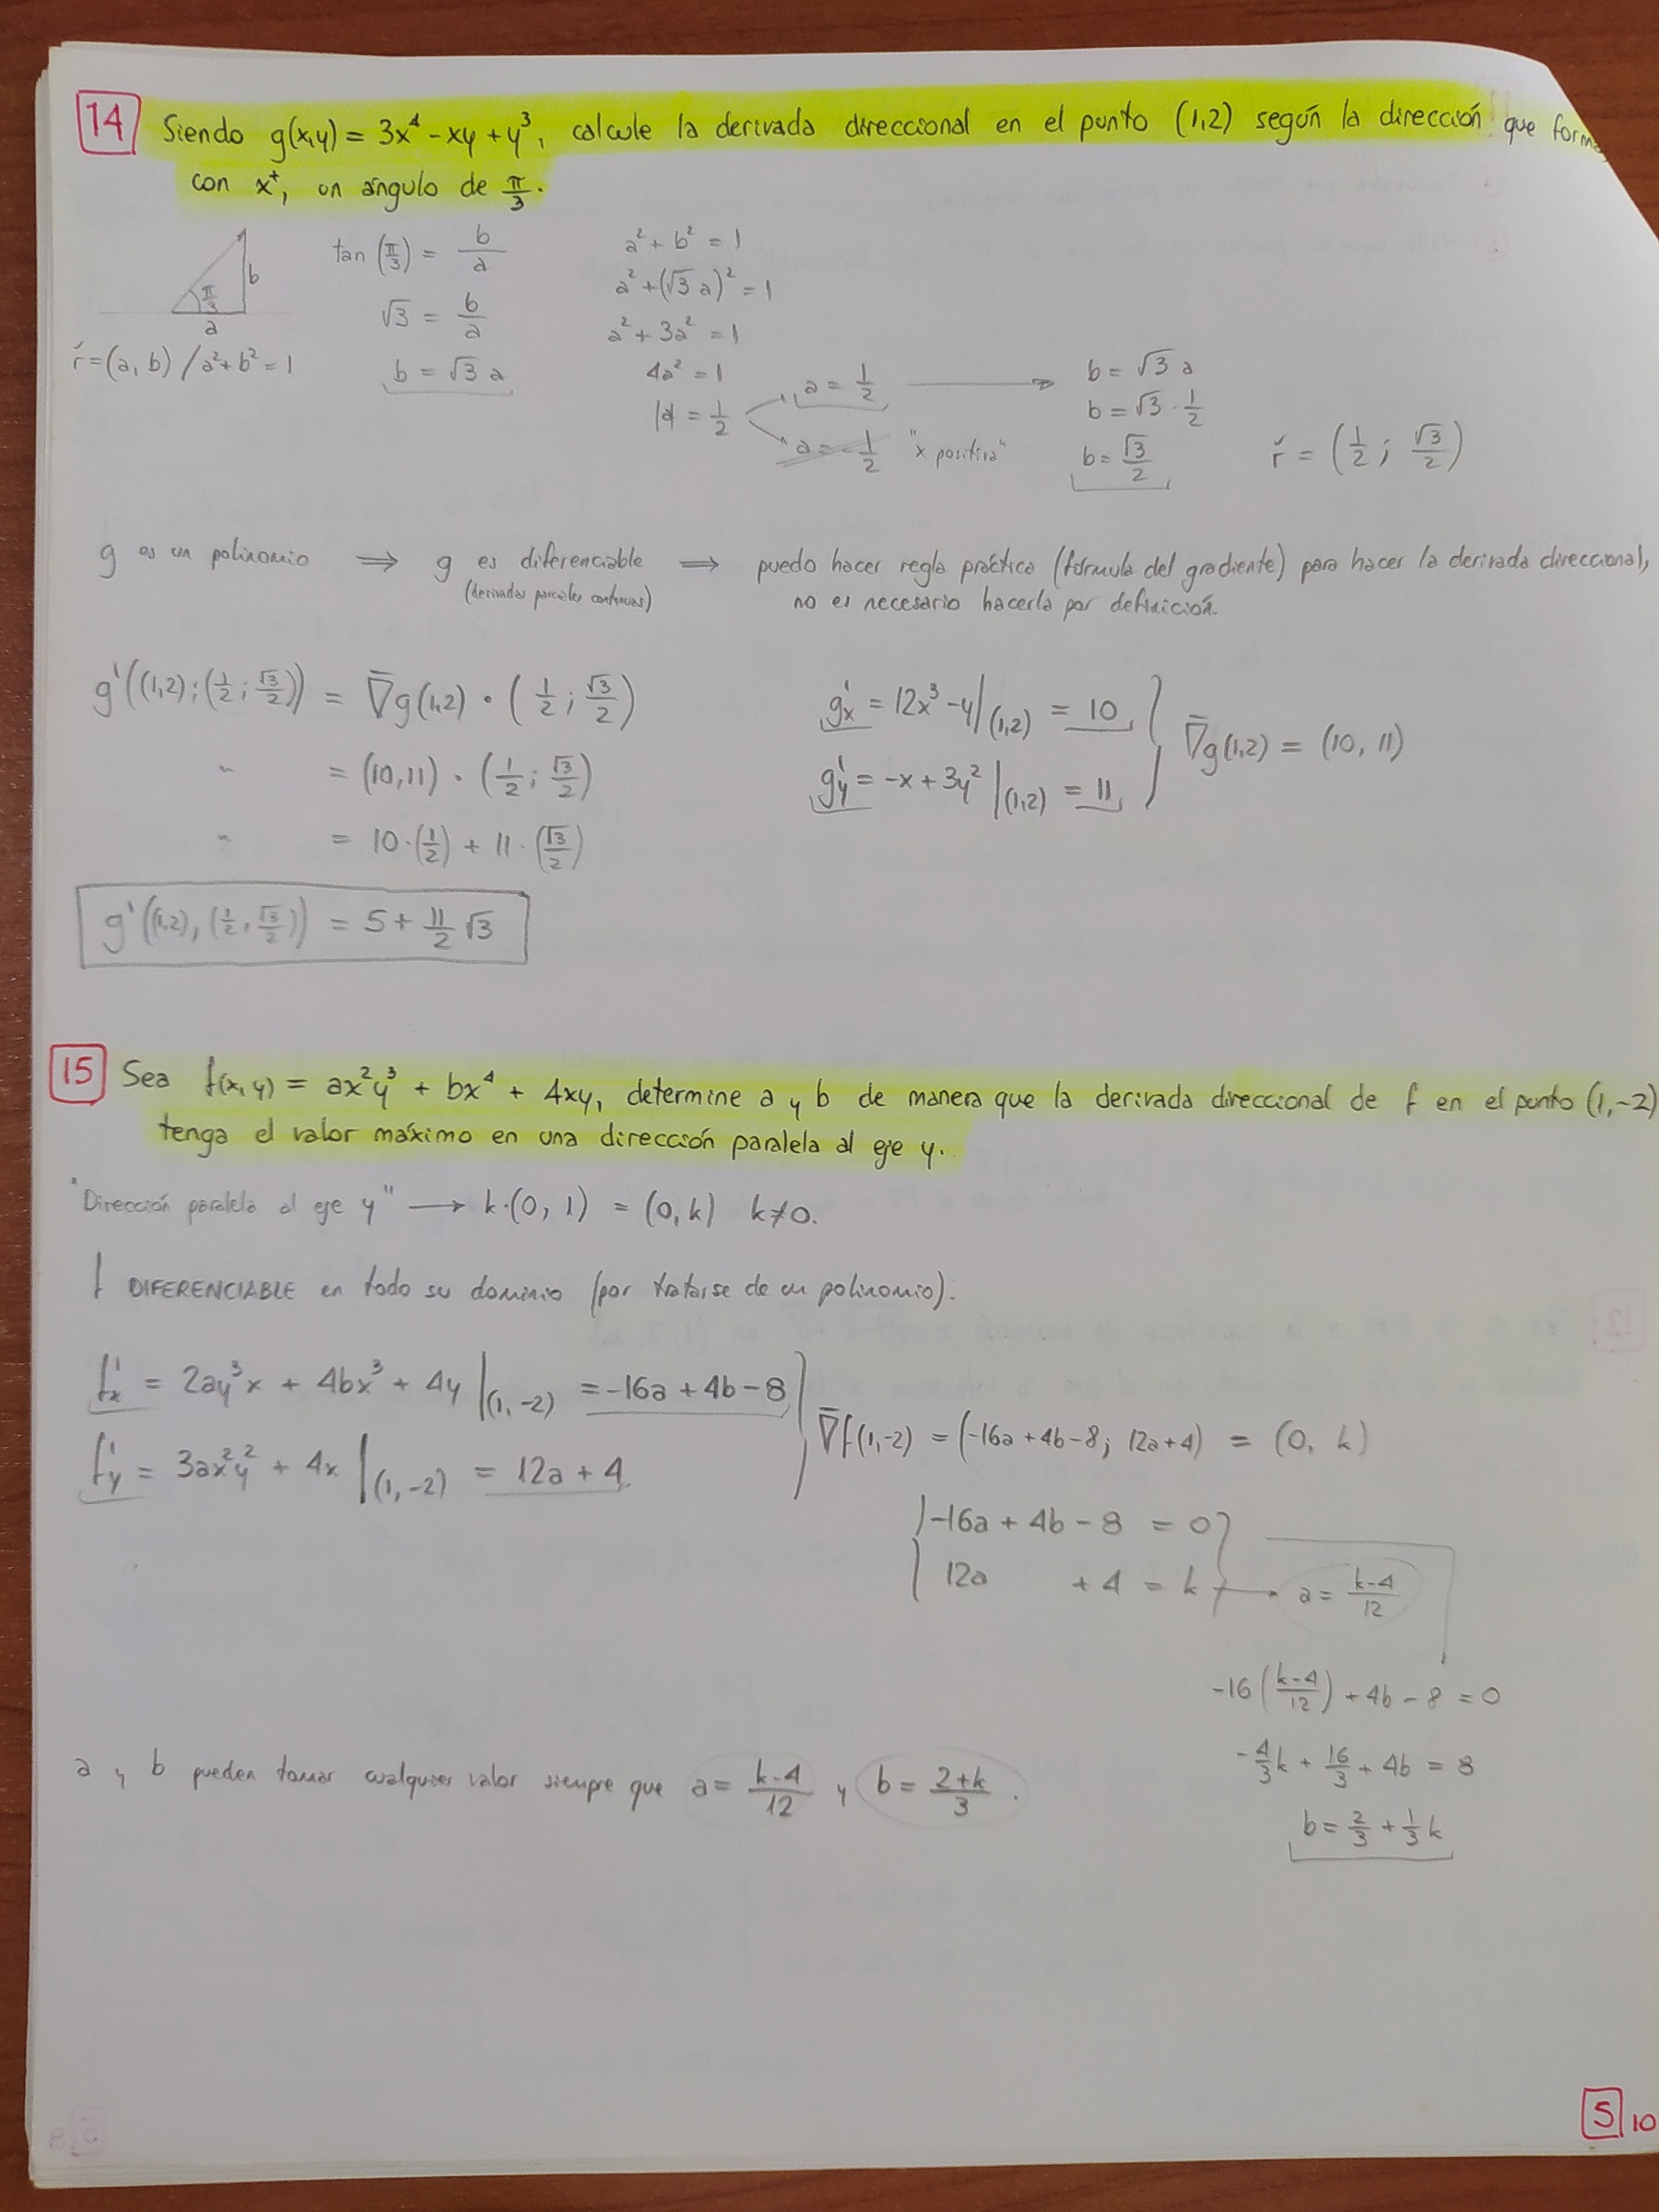 14 Siendo g(x,y) = 3x⁴ - xy + y³, calcule la derivada direccional en el punto (1,2) según la dirección que forma,
con x⁺, un ángulo de π/3.
π/3 b
a
ř = (a, b) / a² + b² = 1
tan (π/3) = b/a
√3 = b/a
b = √3 a
a² + b² = 1
a² + (√3 a)² = 1
a² + 3a² = 1
4a² = 1
|a| = 1/2
a = 1/2
a = -1/2 "x positiva"
b = √3 a
b = √3 · 1/2
b = √3/2
ř = (1/2 ; √3/2)
g es un polinomio ⟹ g es diferenciable ⟹ puedo hacer regla práctica (fórmula del gradiente) para hacer la derivada direccional,
(derivadas parciales continuas) no es necesario hacerla por definición.
g'((1,2);(1/2 ; √3/2)) = ∇g(1,2) · (1/2 ; √3/2)
" = (10,11) · (1/2 ; √3/2)
" = 10·(1/2) + 11·(√3/2)
g'((1,2),(1/2, √3/2)) = 5 + 11/2 √3
g'x = 12x³ - y|(1,2) = 10
g'y = -x + 3y²|(1,2) = 11
∇g(1,2) = (10, 11)
15 Sea f(x,y) = ax²y³ + bx⁴ + 4xy, determine a y b de manera que la derivada direccional de f en el punto (1,-2)
tenga el valor máximo en una dirección paralela al eje y.
"Dirección paralela al eje y" ⟶ k·(0, 1) = (0, k) k≠0.
f DIFERENCIABLE en todo su dominio (por tratarse de un polinomio).
f'x = 2ay³x + 4bx³ + 4y|(1,-2) = -16a + 4b - 8
f'y = 3ax²y² + 4x|(1,-2) = 12a + 4
∇f(1,-2) = (-16a + 4b - 8; 12a + 4) = (0, k)
-16a + 4b - 8 = 0
12a + 4 = k → a = k-4/12
-16(k-4/12) + 4b - 8 = 0
-4/3k + 16/3 + 4b = 8
b = 2/3 + 1/3 k
a y b pueden tomar cualquier valor siempre que a = k-4/12 y b = 2+k/3.
5 10